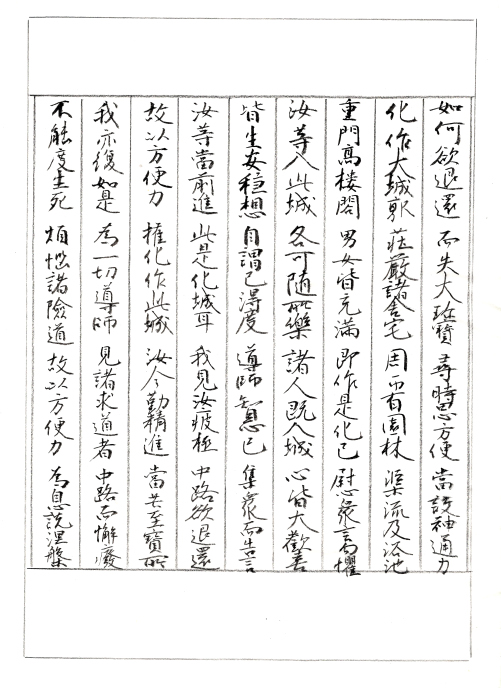 如何欲退還 而失大珍寶 尋時思方便 當設神通力
化作大城郭 莊嚴諸舍宅 周帀有園林 渠流及浴池
重門高樓閣 男女皆充滿 即作是化已 慰眾言勿懼
汝等入此城 各可隨所樂 諸人既入城 心皆大歡喜
皆生安穩想 自謂已得度 導師知息已 集眾而告言
汝等當前進 此是化城耳 我見汝疲極 中路欲退還
故以方便力 權化作此城 汝今勤精進 當共至寶所
我亦復如是 為一切導師 見諸求道者 中路而懈廢
不能度生死 煩惱諸險道 故以方便力 為息說涅槃